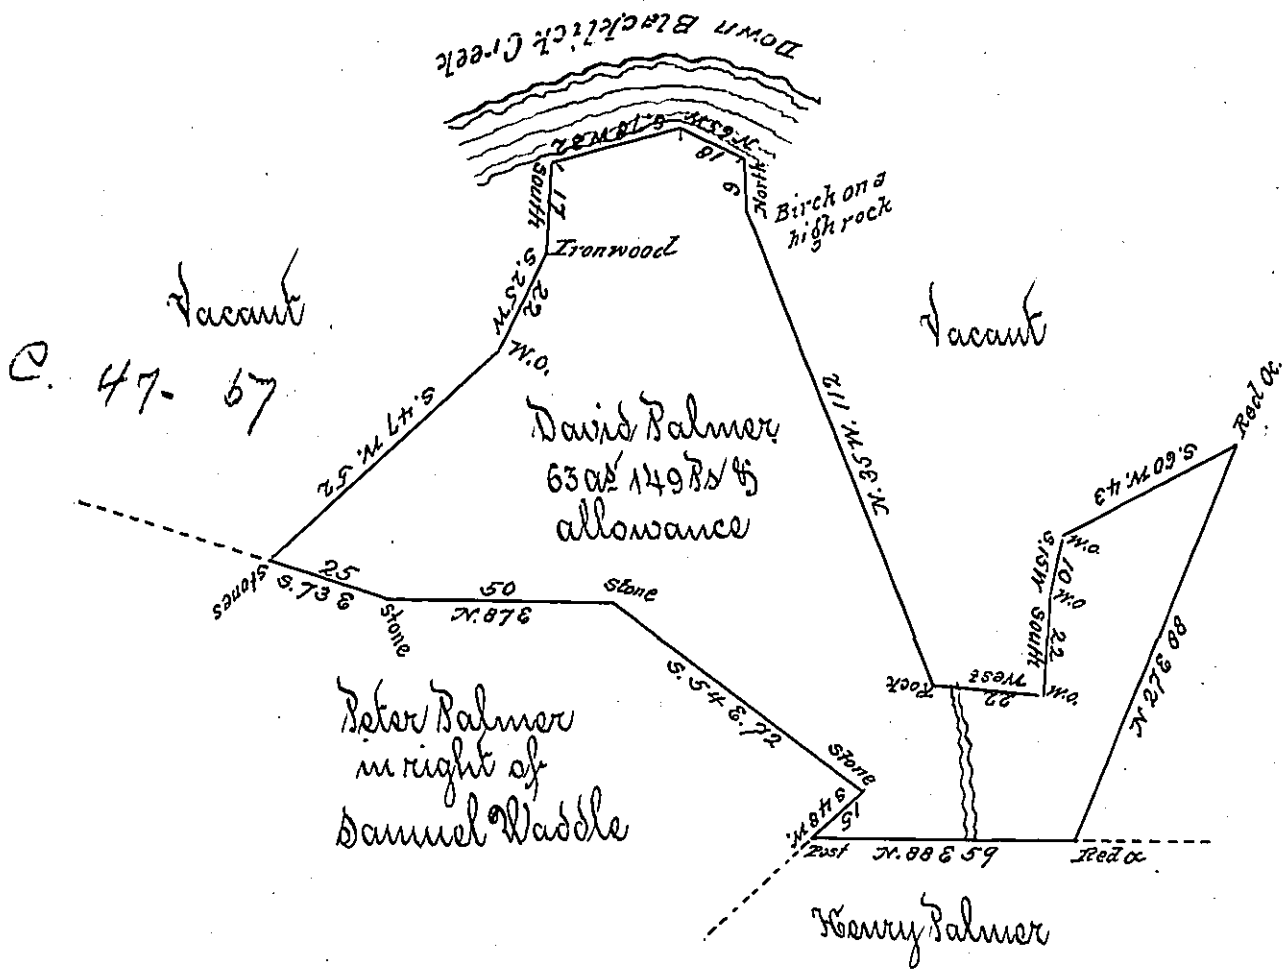 Down Blacklick Creek
N.65W.
18
S.78W32
North
6
Birch on a
high rock
South
17
Ironwood
S.25W
22
W.O.
Vacant
Vacant
C. 47- 67
S.47W. 52
N.35W.112
David Palmer
63 as 149 Ps &
allowance
Red O.
S.60W.43
W.O.
S.15W
10
W.O.
South
22
W.O.
West
22
Rock
N27E 88
stones
25
S.73E
stone
50
N.87E
stone
S.54E.72
stone
S48W.
15
Post
N.88E 59
Red O
Peter Palmer
in right of
Samuel Waddle
Henry Palmer